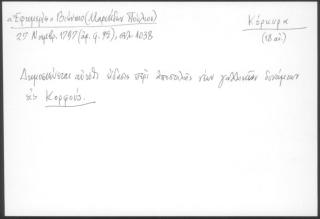 «Εφημερίς» Βιέννης (Μαρκίδων Πούλιου)
Κέρκυρα
27 Νοεμβρ. 1797 (αρ. φ. 95), σελ. 1038
(18 αι.)
Δημοσιεύεται αυτόθι είδησις περί αποστολής νέων γαλλικών δυνάμεων
εις Κορφούς.